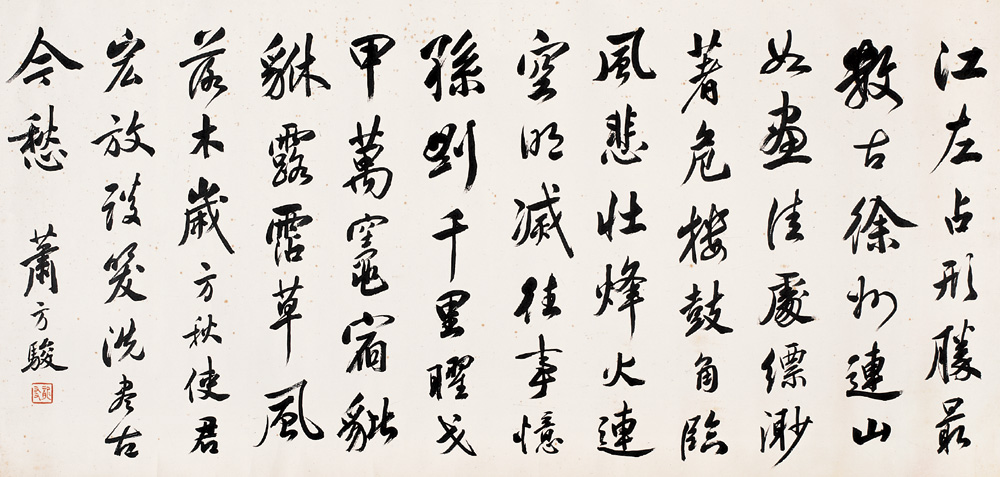 江左占形勝最
數古徐州連山
如畫佳處縹渺
著危樓鼓角臨
風悲壯烽火連
空明滅往事憶
孫劉千里曜戈
甲萬竈宿貔
貅露霑草風
落木歲方秋使君
宏放談笑洗盡古
今愁 蕭方駿